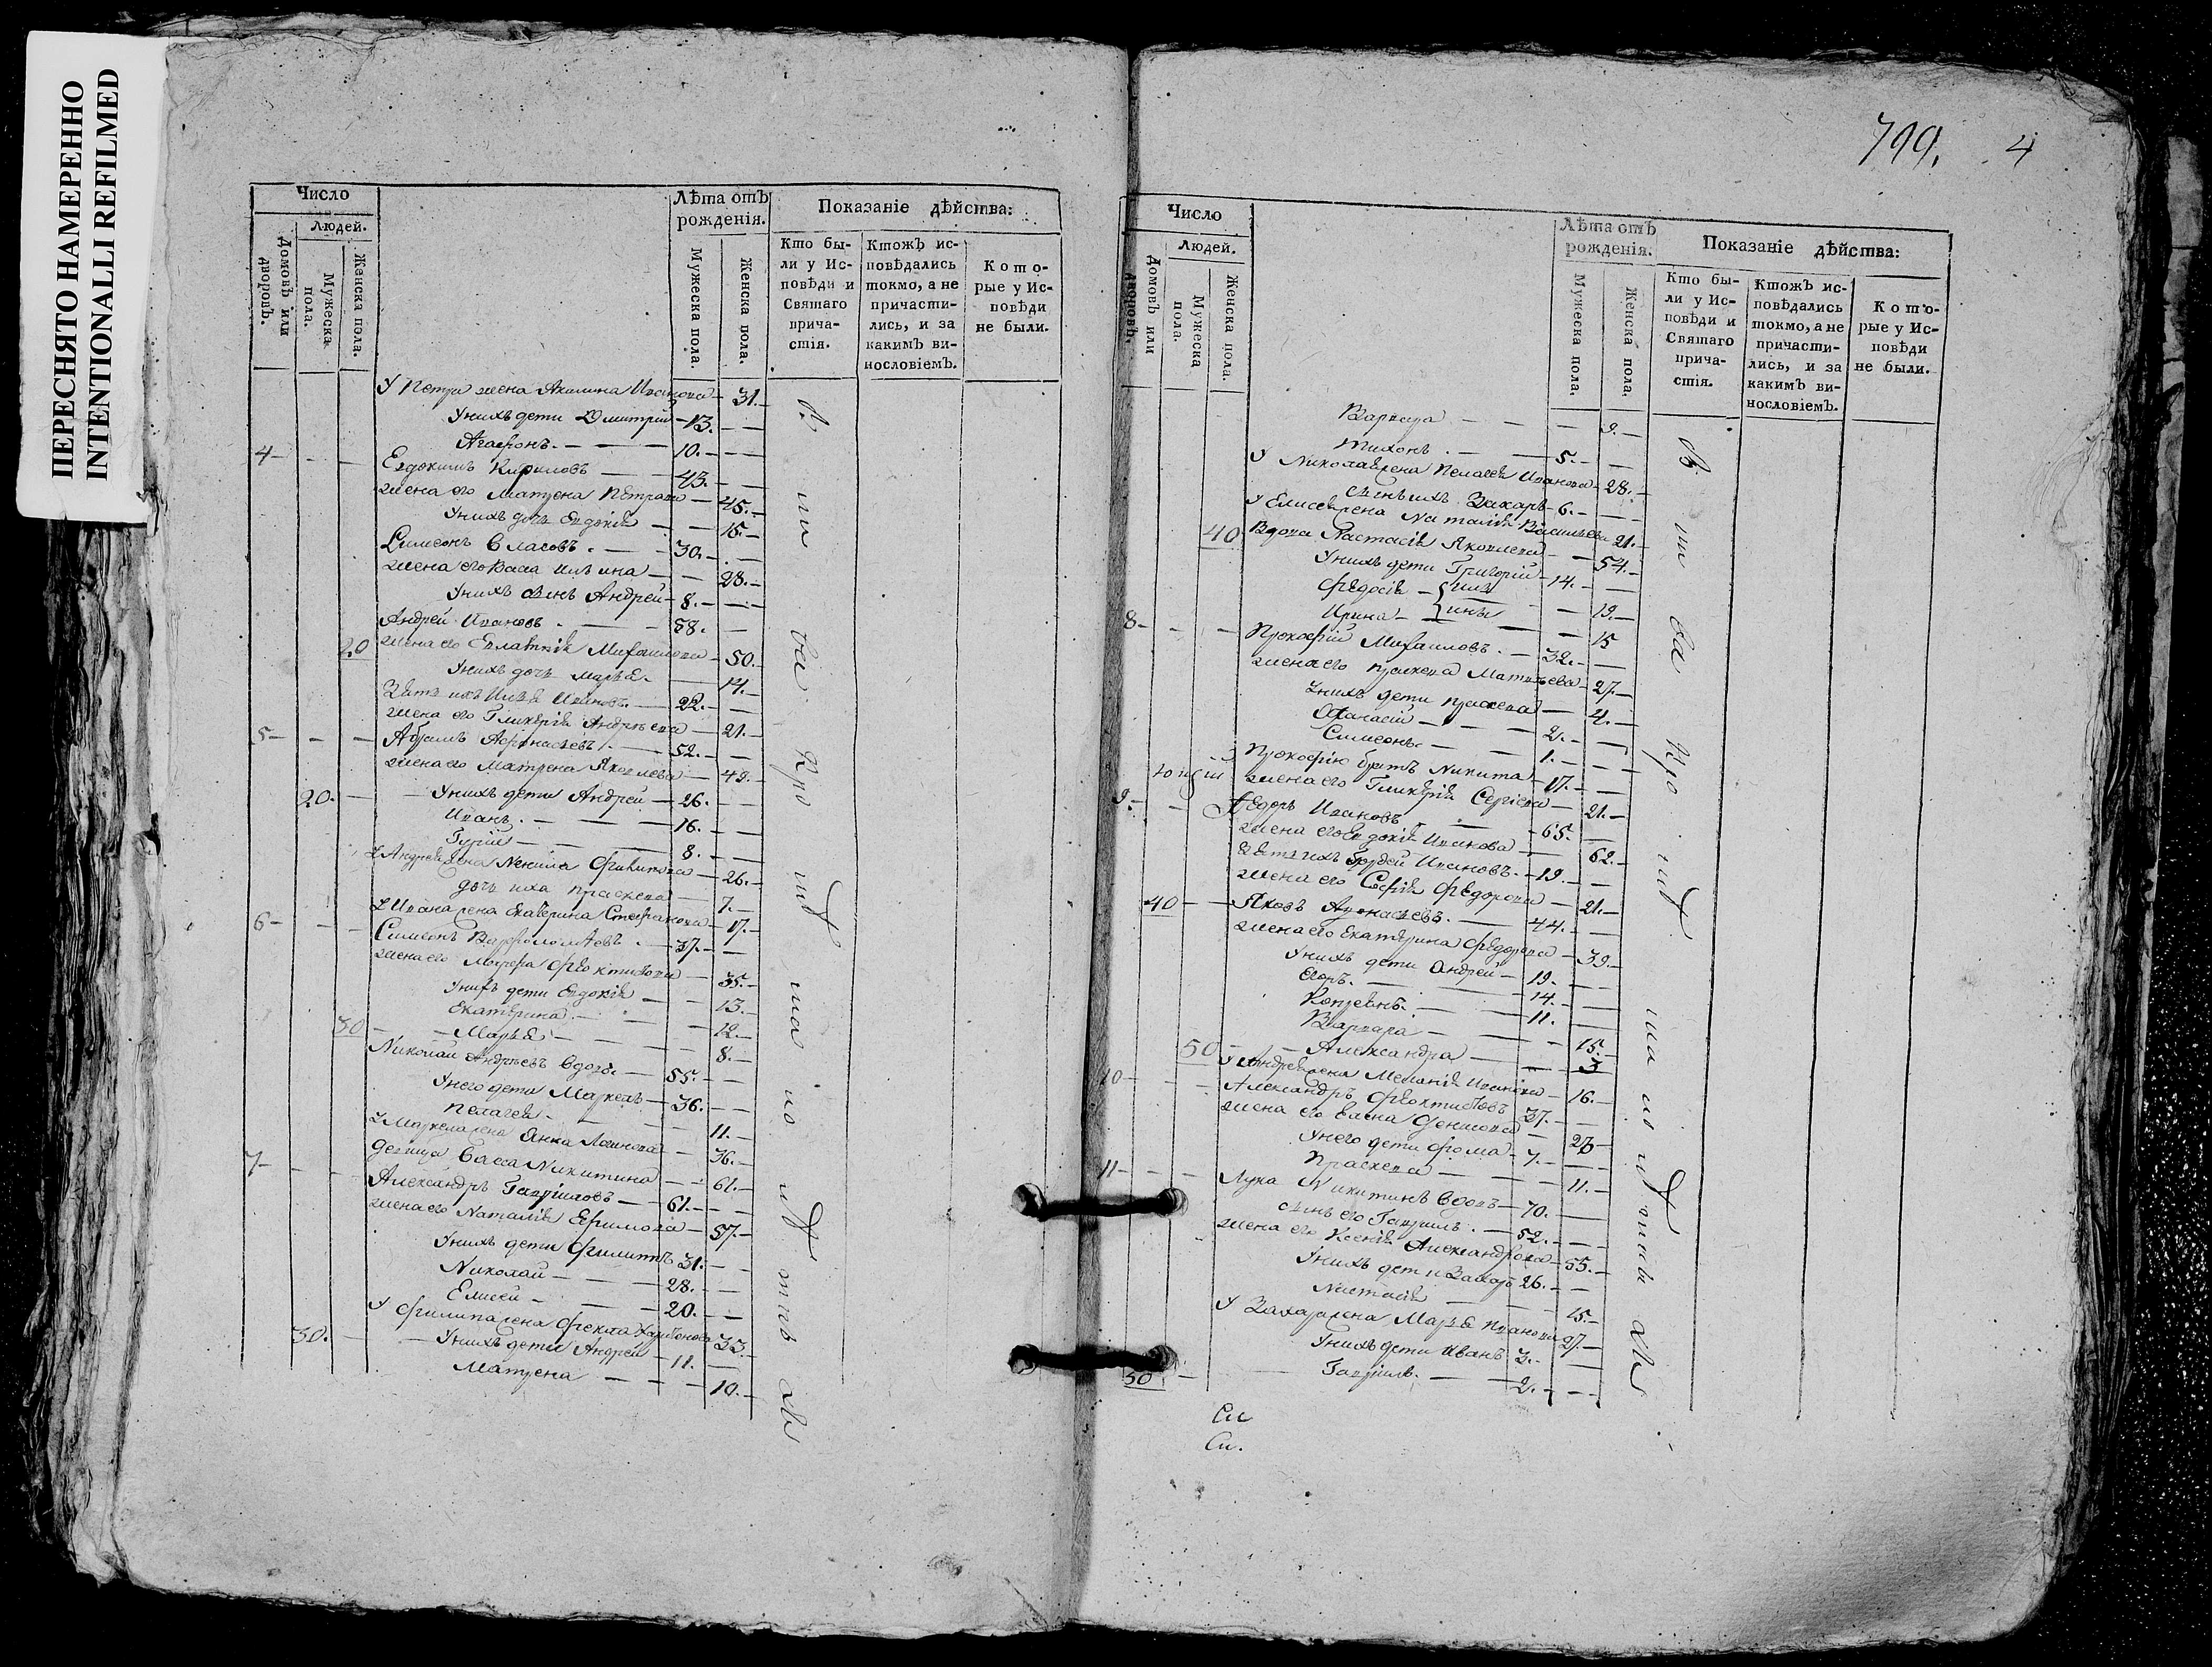 ПЕРЕСНЯТО НАМЕРЕННО
INTENTIONALLI REFILMED
Число
Людей.
Домовъ или дворовъ.
Мужеска пола.
Женска пола.
Лѣта отъ рожденія.
Мужеска пола.
Женска пола.
Показаніе дѣйства:
Кто были у Исповѣди и Святаго причастія.
Ктожъ исповѣдались токмо, а не причастились, и за какимъ винословіемъ.
Которые у Исповѣди не были.
У Петра жена Акилина Иванова 31.
У нихъ дети Дмитрий 13.
Агафонъ. 10.
4 Евдокимъ Кириловъ 43.
жена его Матрена Петрова 45.
У нихъ дочь Евдокія 15.
Симеонъ Власовъ. 30.
жена его Васа Ильина 28.
У нихъ сынъ Андрей 8.
Андрей Ивановъ. 58.
20 жена его Евлампія Михаилова 50.
У нихъ дочь Марья. 14.
Зять ихъ Илья Ивановъ. 22.
жена его Гликерія Андреева 21.
5 Абрамъ Афонасьевъ. 52.
жена его Матрена Яковлева 49.
20. У нихъ дети Андрей 26.
Иванъ. 16.
Гурій 8.
У Андрея жена Ненила Филипова 26.
дочь ихъ Праскева 7.
У Ивана жена Екатерина Стефанова 17.
6 Симеонъ Варфоломѣевъ. 37.
жена его Марфа Феоктистова 35.
У нихъ дети Евдокія 13.
Екатерина. 12.
30 Марья 8.
Николай Андреевъ вдовъ. 55.
У него дети Маркелъ 36.
Пелагея. 11.
У Маркела жена Анна Логинова 36.
девица Васса Никитина 61.
7 Александръ Гаврииловъ 61.
жена его Наталія Ефимова 57.
У нихъ дети Филиппъ 31.
Николай 28.
Елисей 20.
У Филипа жена Фекла Харитонова 33.
30. У нихъ дети Андрей 11.
Матрена 10.
799. 4
Число
Людей.
Домовъ или дворовъ.
Мужеска пола.
Женска пола.
Лѣта отъ рожденія.
Мужеска пола.
Женска пола.
Показаніе дѣйства:
Кто были у Исповѣди и Святаго причастія.
Ктожъ исповѣдались токмо, а не причастились, и за какимъ винословіемъ.
Которые у Исповѣди не были.
Варвара 9.
Тихонъ. 5.
У Николая жена Пелагея Иванова 28.
сынъ ихъ Захаръ 6.
У Елисея жена Наталія Васильева 21.
40 Вдова Настасія Яковлева 54.
У нихъ дети Григорій 14.
Федосія 19.
Ирина 15
8 Прокофій Михаиловъ. 32.
жена его Праскева Матвѣева 27.
У нихъ дети Праскева 4.
Афанасій 2.
Симеонъ. 1.
Прокофію братъ Никита 17.
жена его Гликерія Сергіева 21.
9. Федоръ Ивановъ 65.
жена его Евдокія Иванова 62.
Зять ихъ Гордей Ивановъ. 19.
жена его Софія Федорова 21.
40 Яковъ Афонасьевъ. 44.
жена его Екатерина Федорова 39.
У нихъ дети Андрей 19.
Егоръ. 14.
11.
Варвара 15.
50 Александра 3
У Андрея жена Меланія Иванова 16.
10 Александръ Феоктистовъ 37.
жена его Елена Денисова
У него дети Фома 7.
Праскева 11.
11 Лука Никитинъ вдовъ 70.
сынъ его Гавриилъ. 52.
жена его Ксенія Александрова 55.
У нихъ дети Захаръ 26.
Настасія 15.
У Захара жена Марья Иванова 27.
У нихъ дети Иванъ 3.
50 Гавриилъ. 2.